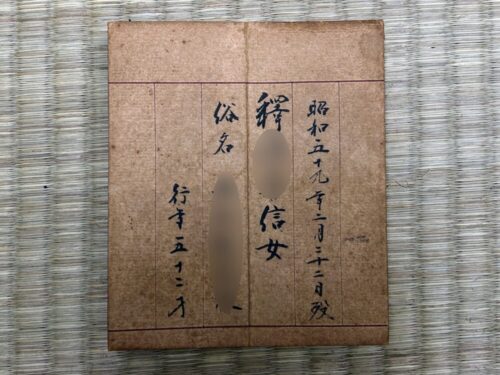 昭和五十九年二月二十二日歿
釋 信女
俗名
行年五十二才